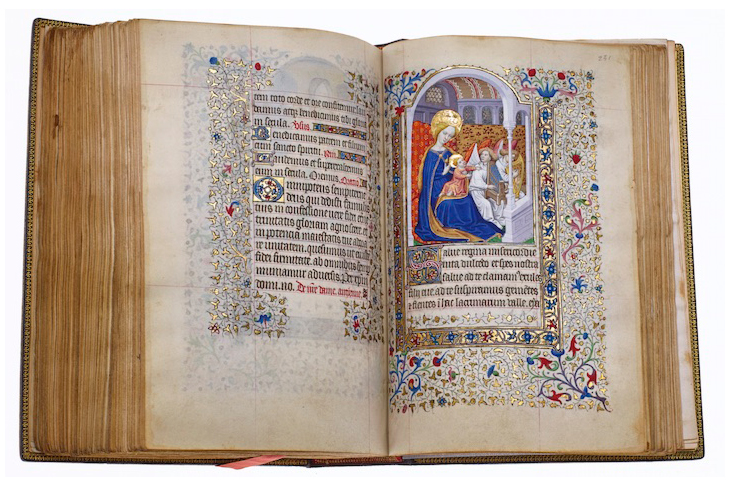 tem toto corde et ore confitemur lau
damus atqz benedicimus tibi gloria
in secula. V̄sus.
Benedicamus patrem et filium
cum sancto spiritu.
Laudemus et superexaltemus
eum in secula. Oremus.
Omnipotens sempiterne
deus qui dedisti famulis
tuis in confessione vere fidei eterne
trinitatis gloriam agnoscere et
in potencia maiestatis tue adora
re unitatem. quesumus ut eiusdem
fidei firmitate. ab omnibus semper
muniamur aduersis. Per xpm
domi.no. De nre dame. antienne
281
Salue regina misericordie
vita dulcedo et spes nostra
salue ad te clamam exules
filij eue ad te suspiramus gemetes
et flentes i hac lacrimarum valle. eya